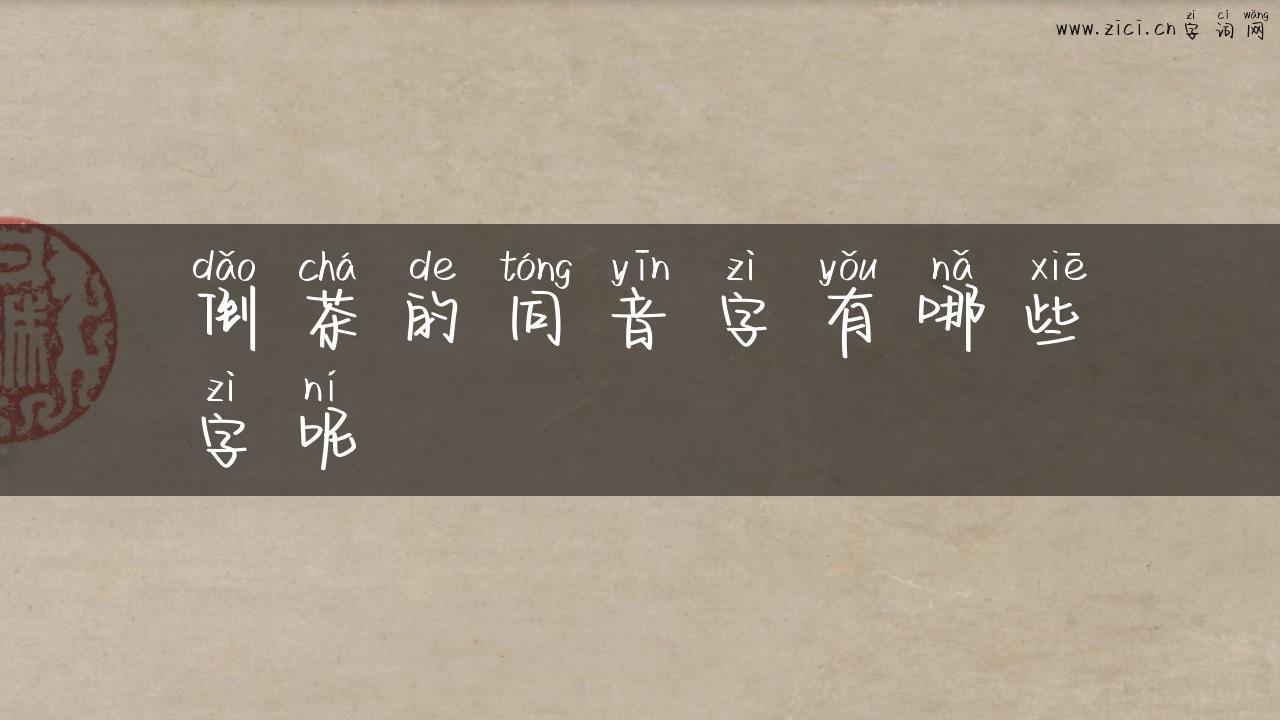 zì cí wǎng
www.zici.cn 字词网
dǎo chá de tóng yīn zì yǒu nǎ xiē
倒茶的同音字有哪些
zì ní
字呢